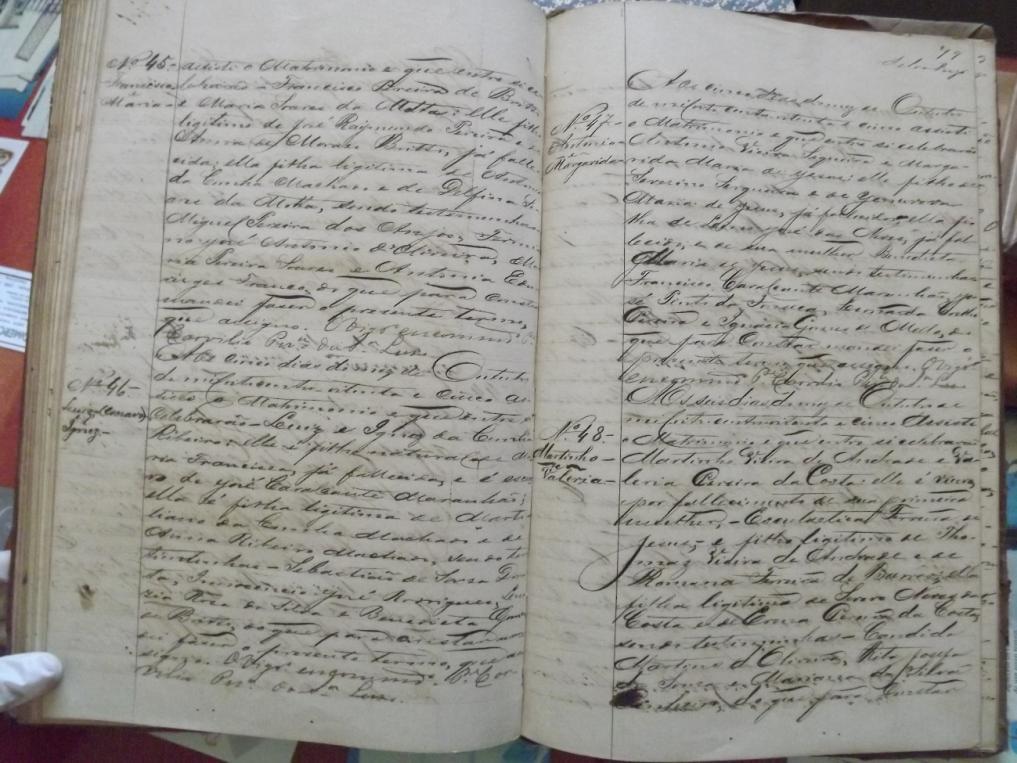 Nº 45-
Francisco
e
Maria-
assisti o Matrimonio e que entre si ce
lebrarão Francisco Pereira de Britto
e Maria Soares da Motta: elle filho
legitimo de José Raymundo Pereira e de
Anna de Moraes Britto, já falle
cida; ella filha legitima de Antonio
da Cunha Machado e de Delfina So
are da Motta, sendo testemunhas
Miguel Pereira dos Anjos, Firmi
no José Antonio d'Oliveira, Ma
ria Pereira Soares e Antonia Edu
viges Franco, do que para constar
mandei fazer o presente termo,
que assigno. O Vigr.º encommd.º Pe.
Corvilio
Nº 46-
Luiz
Ignez-
Aos cinco dias do mez de Outubro
de mil oitocentos oitenta e cinco as
sisti o Matrimonio e que entre si
celebrarão Luiz e Ignez da Cunha
Ribeiro: elle é filho natural de Ma
ria Francisca, já fallecida, e é escra
vo de José Cavalcante Maranhão;
ella é filha legitima de Marti
liano da Cunha Machado e de
Anna Ribeiro Machado, sendo tes
timunhas - Sebastião de Sousa
Innocencio José Rodrigues,
Rosa da Silva e Benedicta
de Britto, do que para constar man
dei fazer o presente termo, que as
signo. O Vigr.º encommd.º Pe. Cor
vilio
Nº 47-
Antonio
e
Margarida-
Aos cinco dias do mez de Outubro
de mil oitocentos oitenta e cinco assisti
o Matrimonio e que entre si celebrarão
Antonio Vieira Sigueira e Marga
rida Maria de Jesus: elle filho de
Severino Sigueira e de Genoveva
Maria de Jesus, já fallecidos; ella fi
lha de José das Neves, já fal
lecido, e de sua mulher Benedicta
Maria de Jesus, sendo testimunhas
Francisco Cavalcante Maranhão, Jo
sé Pinto da Fonseca, Bernarda
Pereira e Ignacia Gomes de Mello, do
que para constar mandei fazer o
presente termo que assigno. O Vigr.º
encommd.º Pe. Corvilio
Nº 48-
Martinho-
e
Valeria-
Aos seis dias do mez de Outubro de
mil oitocentos oitenta e cinco assisti
o Matrimonio e que entre si celebrarão
Martinho Vieira de Andrade e Va
leria Pereira da Costa: elle é viuvo
por fallecimento de sua primeira
mulher, - Escolastica Ferreira de
Jesus, e filho legitimo de Tho
maz Vieira de Andrade e de
Romana Ferreira de ella
filha legitima de Neves da
Costa e de Pereira da Costa,
sendo testimunhas - Candido
Martins d'Oliveira, Rita Josefa
de Sousa e Marianna da Silva
do que para constar